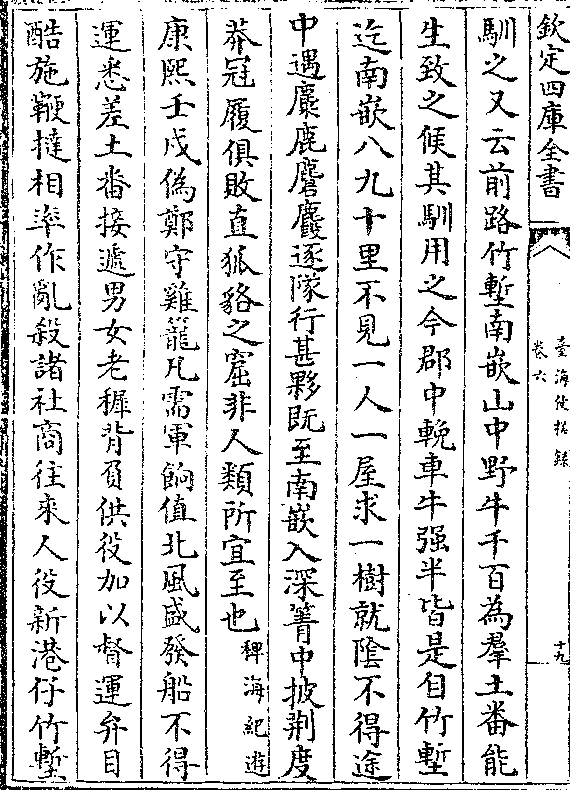 欽定四庫全書
臺海使槎録
卷六
十九
馴之又云前路竹塹南嵌山中野牛千百為羣土番能
生致之候其馴用之今郡中輓車牛强半皆是自竹塹
迄南嵌八九十里不見一人一屋求一樹就隂不得途
中遇麋鹿麏麚逐隊行甚夥既至南嵌入深箐中披荆度
莽冠履俱敗直狐貉之窟非人類所宜至也稗海紀遊
康熙壬戌偽鄭守雞籠凡需軍餉值北風盛發船不得
運悉差土番接遞男女老穉背負供役加以督運弁目
酷施鞭撻相率作亂殺諸社商往來人役新港仔竹塹